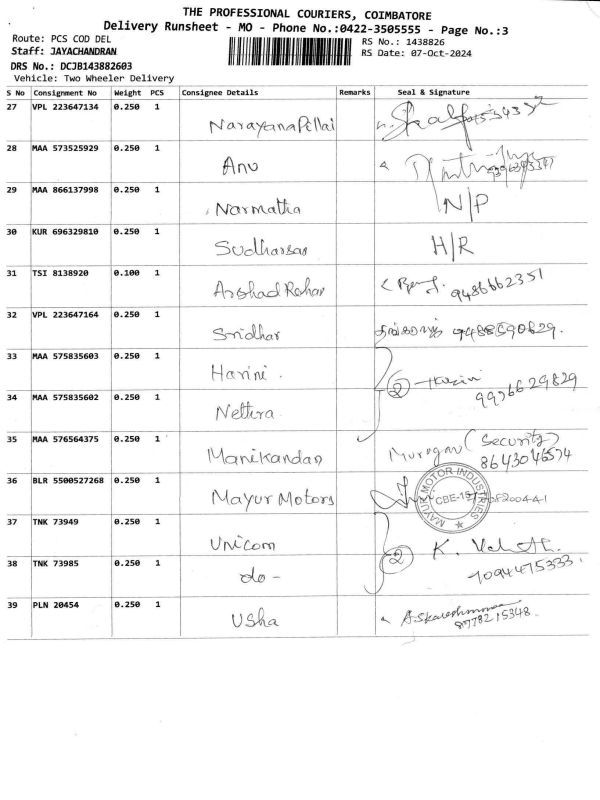 THE PROFESSIONAL COURIERS, COIMBATORE
Delivery Runsheet - MO - Phone No.:0422-3505555 - Page No.:3
Route: PCS COD DEL
RS No.: 1438826
Staff: JAYACHANDRAN
RS Date: 07-Oct-2024
DRS No.: DCJB143882603
Vehicle: Two Wheeler Delivery
S No Consignment No Weight PCS Consignee Details Remarks Seal & Signature
27 VPL 223647134 0.250 1 Narayana Pillai
28 MAA 573525929 0.250 1 Anu
29 MAA 866137998 0.250 1 Narmatha N/P
30 KUR 696329810 0.250 1 Sudharsan H/R
31 TSI 8138920 0.100 1 Arshad Rohan 9486662351
32 VPL 223647164 0.250 1 Sridhar 9488590629.
33 MAA 575835603 0.250 1 Harini. 2 Harini 9976629829
34 MAA 575835602 0.250 1 Nethra
35 MAA 576564375 0.250 1 Manikandan Murugan (Security) 8643046574
36 BLR 5500527268 0.250 1 Mayur Motors MAYUR MOTOR INDUSTRIES
37 TNK 73949 0.250 1 Unicom 2
38 TNK 73985 0.250 1 do - 7094475333.
39 PLN 20454 0.250 1 Usha 8778215348